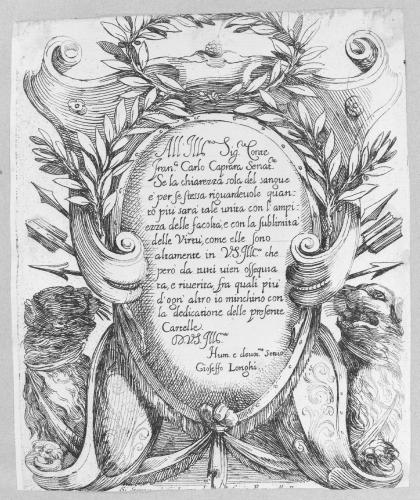 All Ill.mo Sig.r Conte
Fran.o Carlo Caprara Senat.re
Se la chiarezza sola del sangue
e per se stessa riguardeuole quan=
to piu sara tale unita con l'ampi=
ezza delle facolta, e con la sublimita
delle Virtu, come elle sono
altamente in V.S.Ill.ma che
pero da tutti uien ossequia
ta, e riuerita, fra quali piu
d'ogni altro io m'inchino con
la dedicatione delle presente
Cartelle
D.V.S.Ill.ma
Hum. e deuot.mo seruo
Gioseffo Longhi.